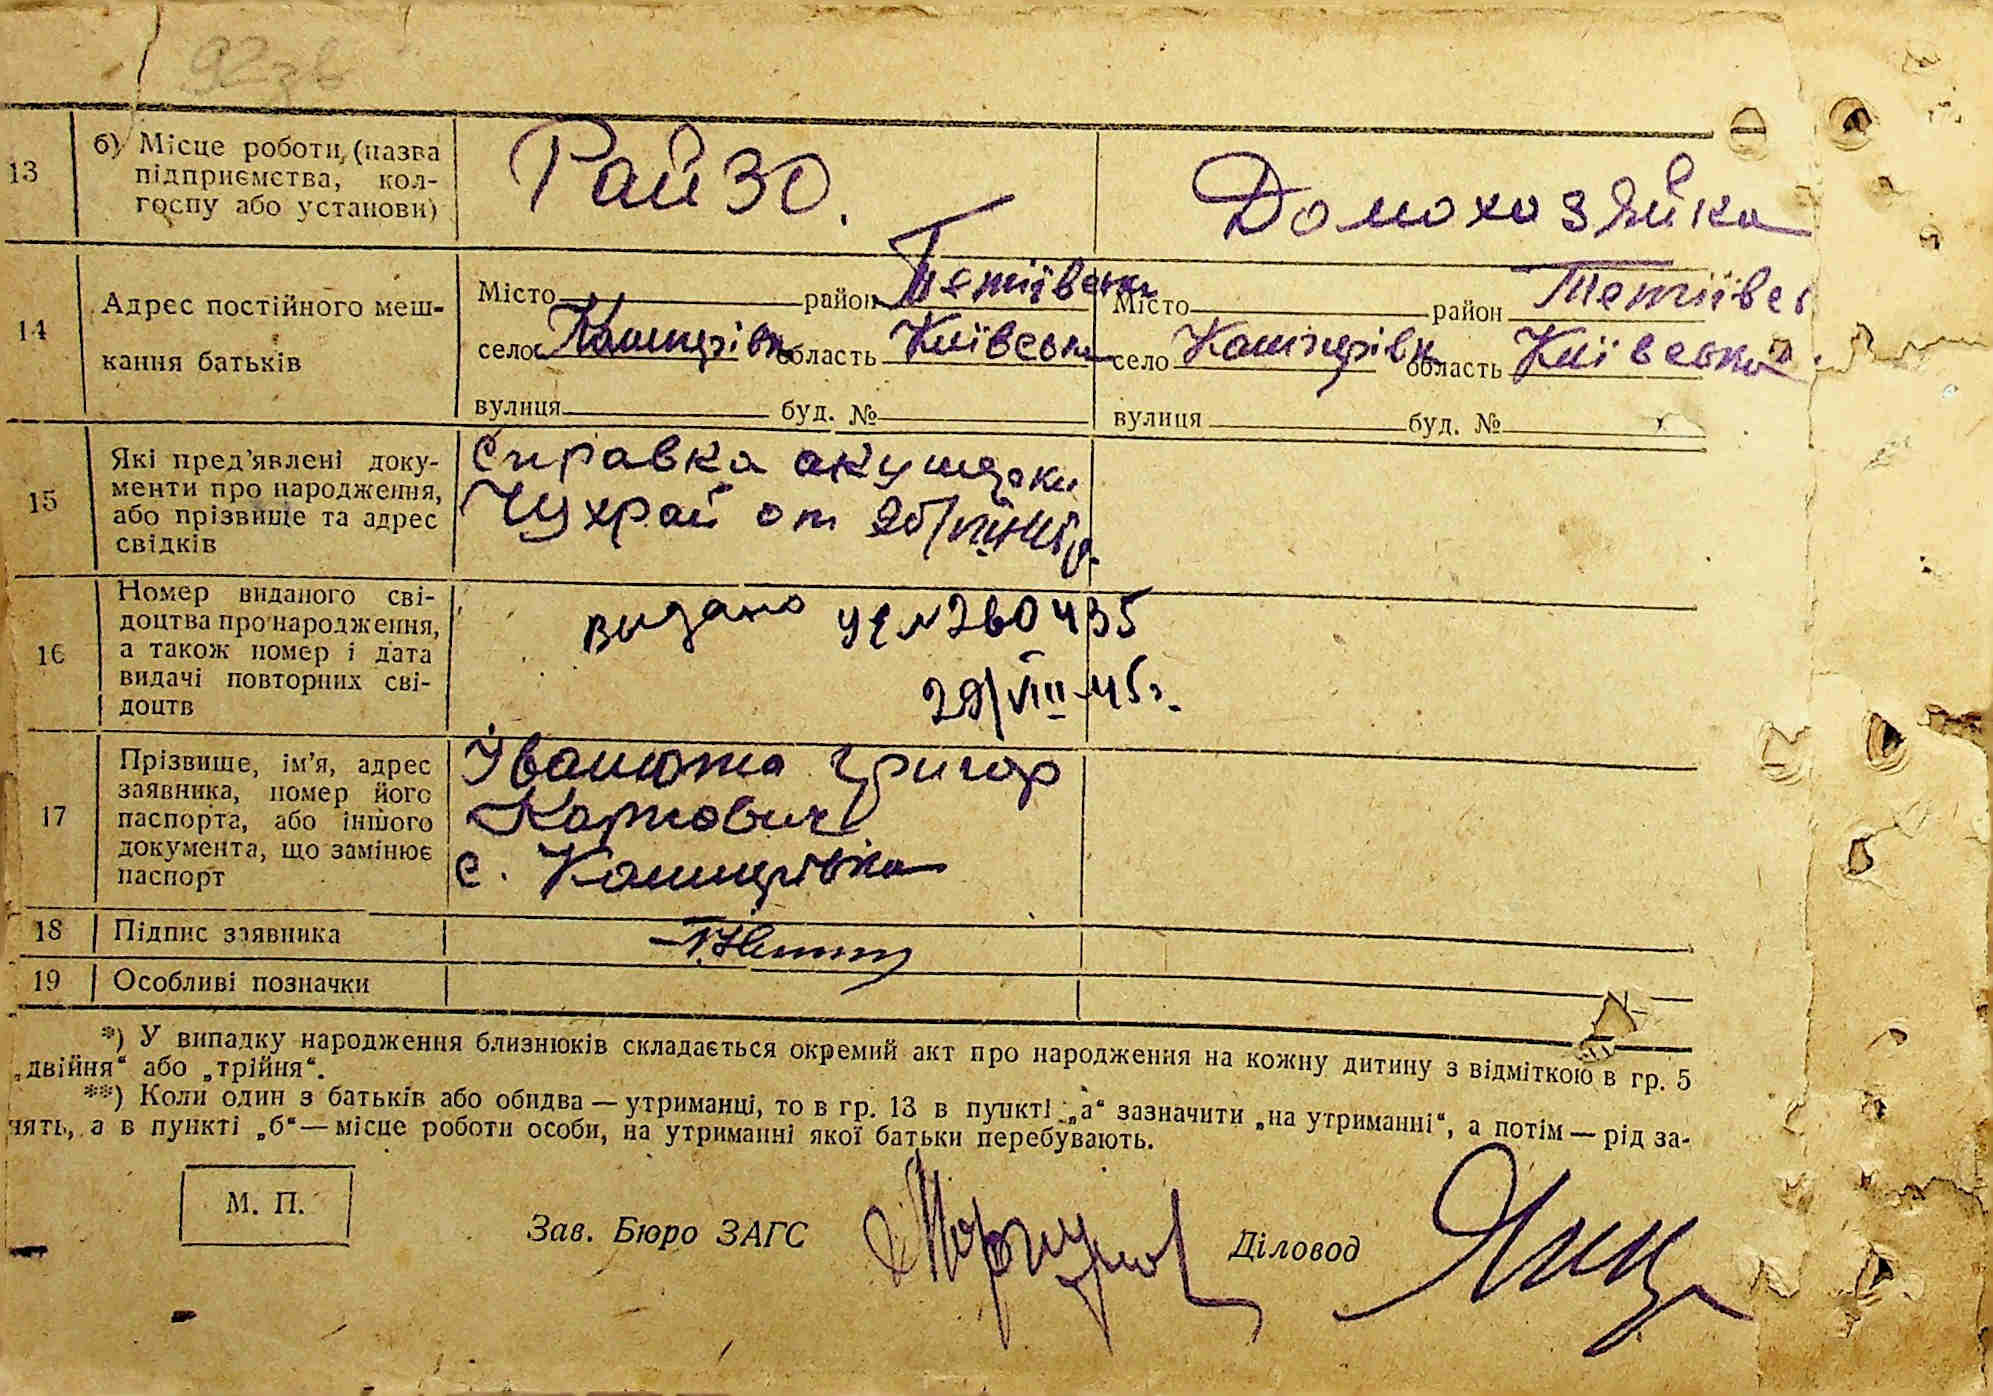 92зв
13
б) Місце роботи, (назва
підприємства, кол-
госпу або установи)
РайЗО.
Домохозяйка
14
Адрес постійного меш-
кання батьків
Місто район Тетіївськ
село Кашперівк область Київська
вулиця буд. №
Місто район Тетіївсь
село Кашперівк область Київська
вулиця буд. №
15
Які пред’явлені доку-
менти про народження,
або прізвище та адрес
свідків
Справка акушерки
Чухрай от
16
Номер виданого сві-
доцтва про народження,
а також номер і дата
видачі повторних сві-
доцтв
видано № 260435
29/VIII-45г.
17
Прізвище, ім’я, адрес
заявника, номер його
паспорта, або іншого
документа, що замінює
паспорт
Григор
Карпович
с. Кашперівка
18
Підпис заявника
19
Особливі позначки
*) У випадку народження близнюків складається окремий акт про народження на кожну дитину з відміткою в гр. 5
„двійня“ або „трійня“.
**) Коли один з батьків або обидва — утриманці, то в гр. 13 в пункті „а“ зазначити „на утриманні“, а потім — рід за-
нять, а в пункті „б“ — місце роботи особи, на утриманні якої батьки перебувають.
М. П.
Зав. Бюро ЗАГС
Діловод